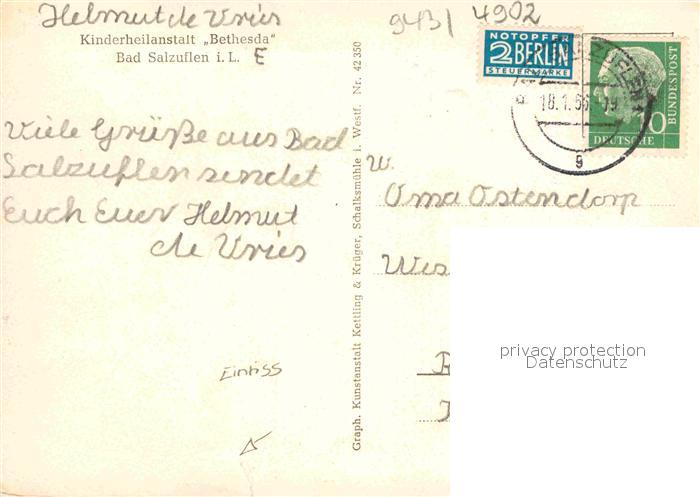 Helmut de Vries
Kinderheilanstalt „Bethesda"
Bad Salzuflen i. L. E
943/ 4902
NOTOPFER
2 BERLIN
STEUERMARKE
18.1.56.-19
g
DEUTSCHE
BUNDESPOST
10
Viele Grüße aus Bad
Salzuflen sendet
Euch Euer Helmut
de Vries
Einriss
Graph. Kunstanstalt Kettling & Krüger, Schalksmühle i. Westf. Nr. 42 350
W.
Oma Ostendorp
Wes
privacy protection
Datenschutz